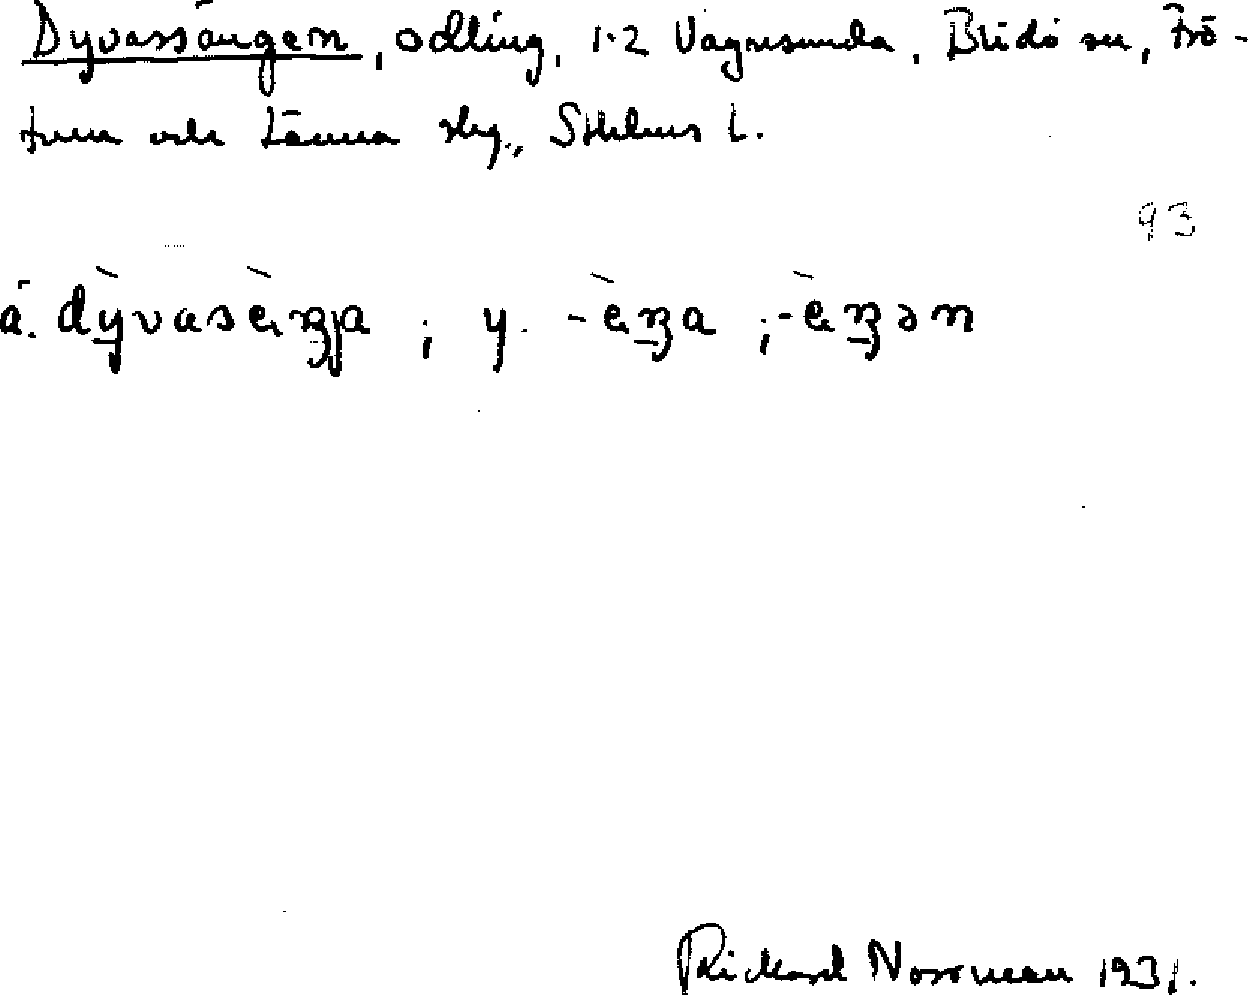 Dyvassängen, odling, 1-2 Vagnsunda, Blidö sn, Frö-
tuna och Länna skg., Sthlms l.
93
ä. dỳvasèŋja ; y. -èŋa ; -èŋən
Rickard Norrman 1931.